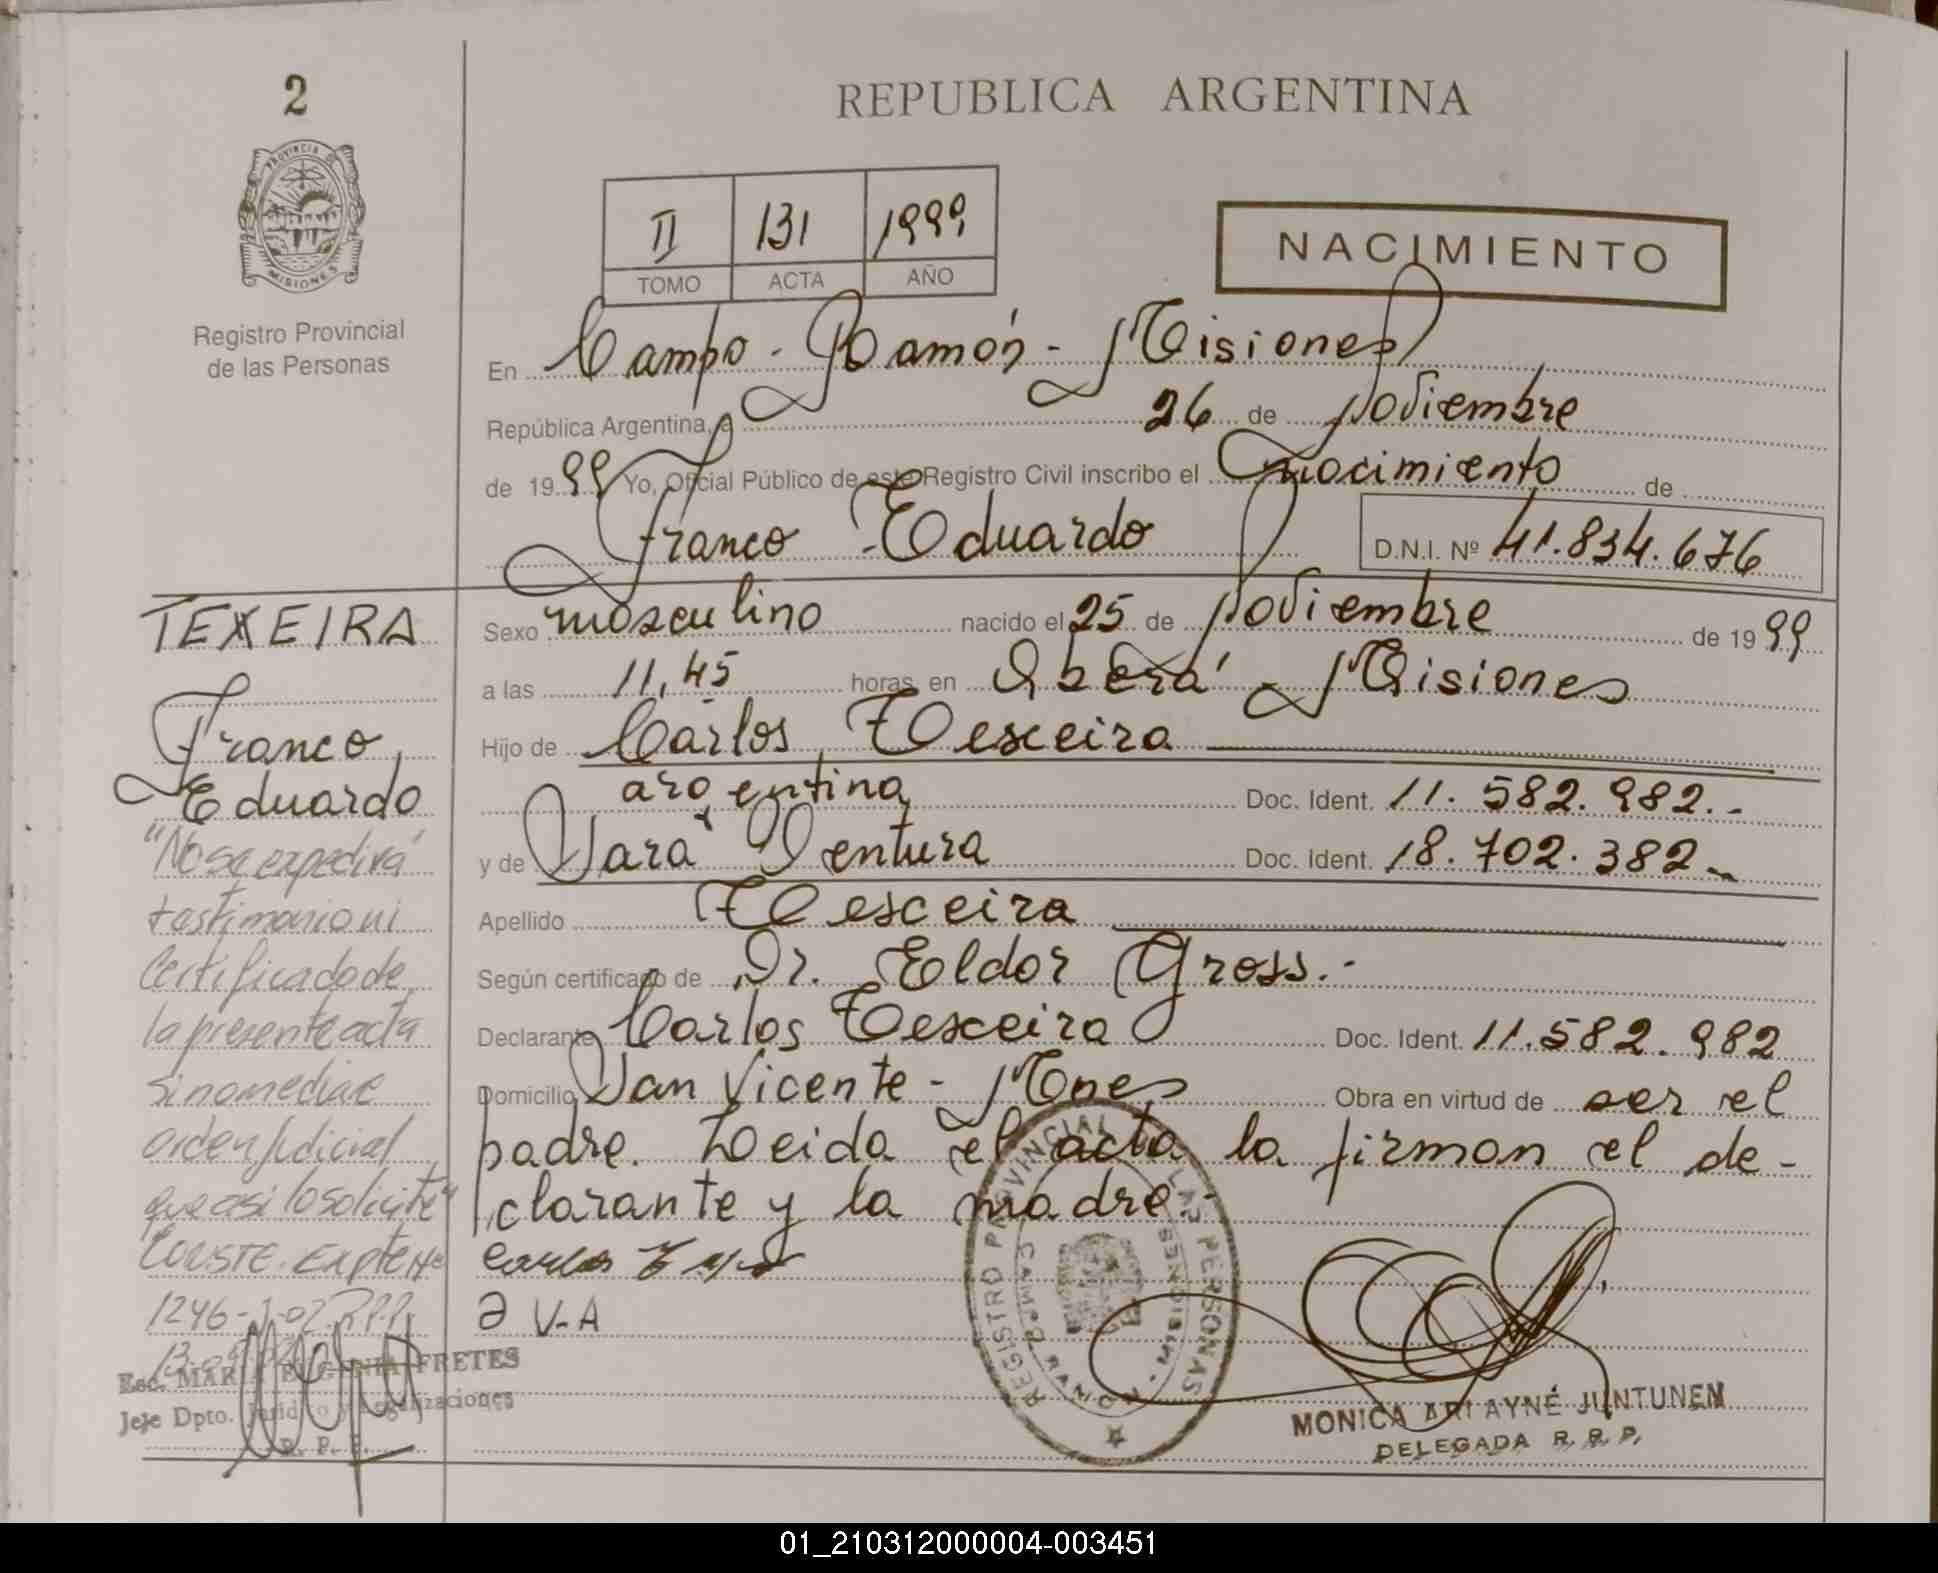 2
PROVINCIA DE
MISIONES
Registro Provincial
de las Personas
REPUBLICA ARGENTINA
II 131 1999
TOMO ACTA AÑO
NACIMIENTO
En Campo - Ramón - Misiones
República Argentina, a 26 de Noviembre
de 1999 Yo, Oficial Público de este Registro Civil inscribo el nacimiento de
Franco Eduardo D.N.I. Nº 41.834.676
Sexo masculino nacido el 25 de Noviembre de 1999
a las 11,45 horas, en Oberá - Misiones
Hijo de Carlos Texeira
argentina Doc. Ident. 11.582.982.-
y de Sara Ventura Doc. Ident. 18.702.382-
Apellido Texeira
Según certificado de Dr. Eldor Gross.-
Declarante Carlos Texeira Doc. Ident. 11.582.982
Domicilio San Vicente - Mnes Obra en virtud de ser el
padre. Leida el acta la firman el de-
clarante y la madre.-
V-A
TEXEIRA
Franco
Eduardo
"No se expedirá
testimonio ni
Certificado de
la presente acta
si no mediare
orden judicial
que asi lo solicite"
CONSTE. Expte Nº
1246-J-02 R.P.P.
Esc. MARIA EUGENIA FRETES
Jefe Dpto. Jurídico y Legalizaciones
R. P. P.
REGISTRO PROVINCIAL DE LAS PERSONAS
CAMPO RAMON - MISIONES
MONICA ARI AYNÉ JUNTUNEN
DELEGADA R. P. P.
01_210312000004-003451